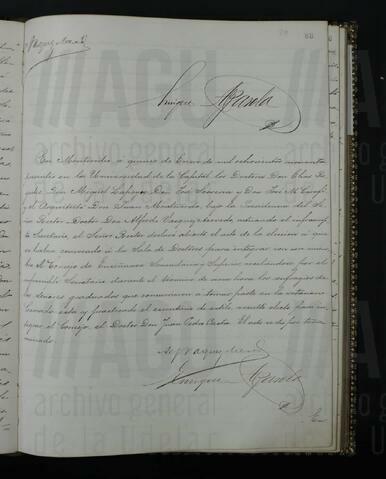 88
Enrique Azarola
En Montevideo, a quince de Enero de mil ochocientos noventa
en la Universidad de la Capital los Doctores Don Elías Re-
Don Miguel Lapeyre, Don José y Don José M.
y el Arquitecto Don bajo la Presidencia del Se-
ñor Rector Doctor Don Alfredo Vasquez Acevedo, actuando el infrascrip-
to Secretario, el Señor Rector declaró abierto el acto de la eleccion á que
había convocado á la Sala de Doctores para integrar con un miem-
bro el Consejo de Enseñanza Secundaria y Superior recibiendose por el
infrascripto Secretario durante el término de una hora los sufragios de
los señores graduados que concurrieron a tomar parte en la votacion.
Cerrado este y practicado el escrutinio de estilo, resultó electo para in-
tegrar el Consejo, el Doctor Don Juan Pedro Castro. El acto se dió por termi-
nado.
Vasquez Acevedo
Enrique Azarola
///AGU
archivo general
de la Udelar